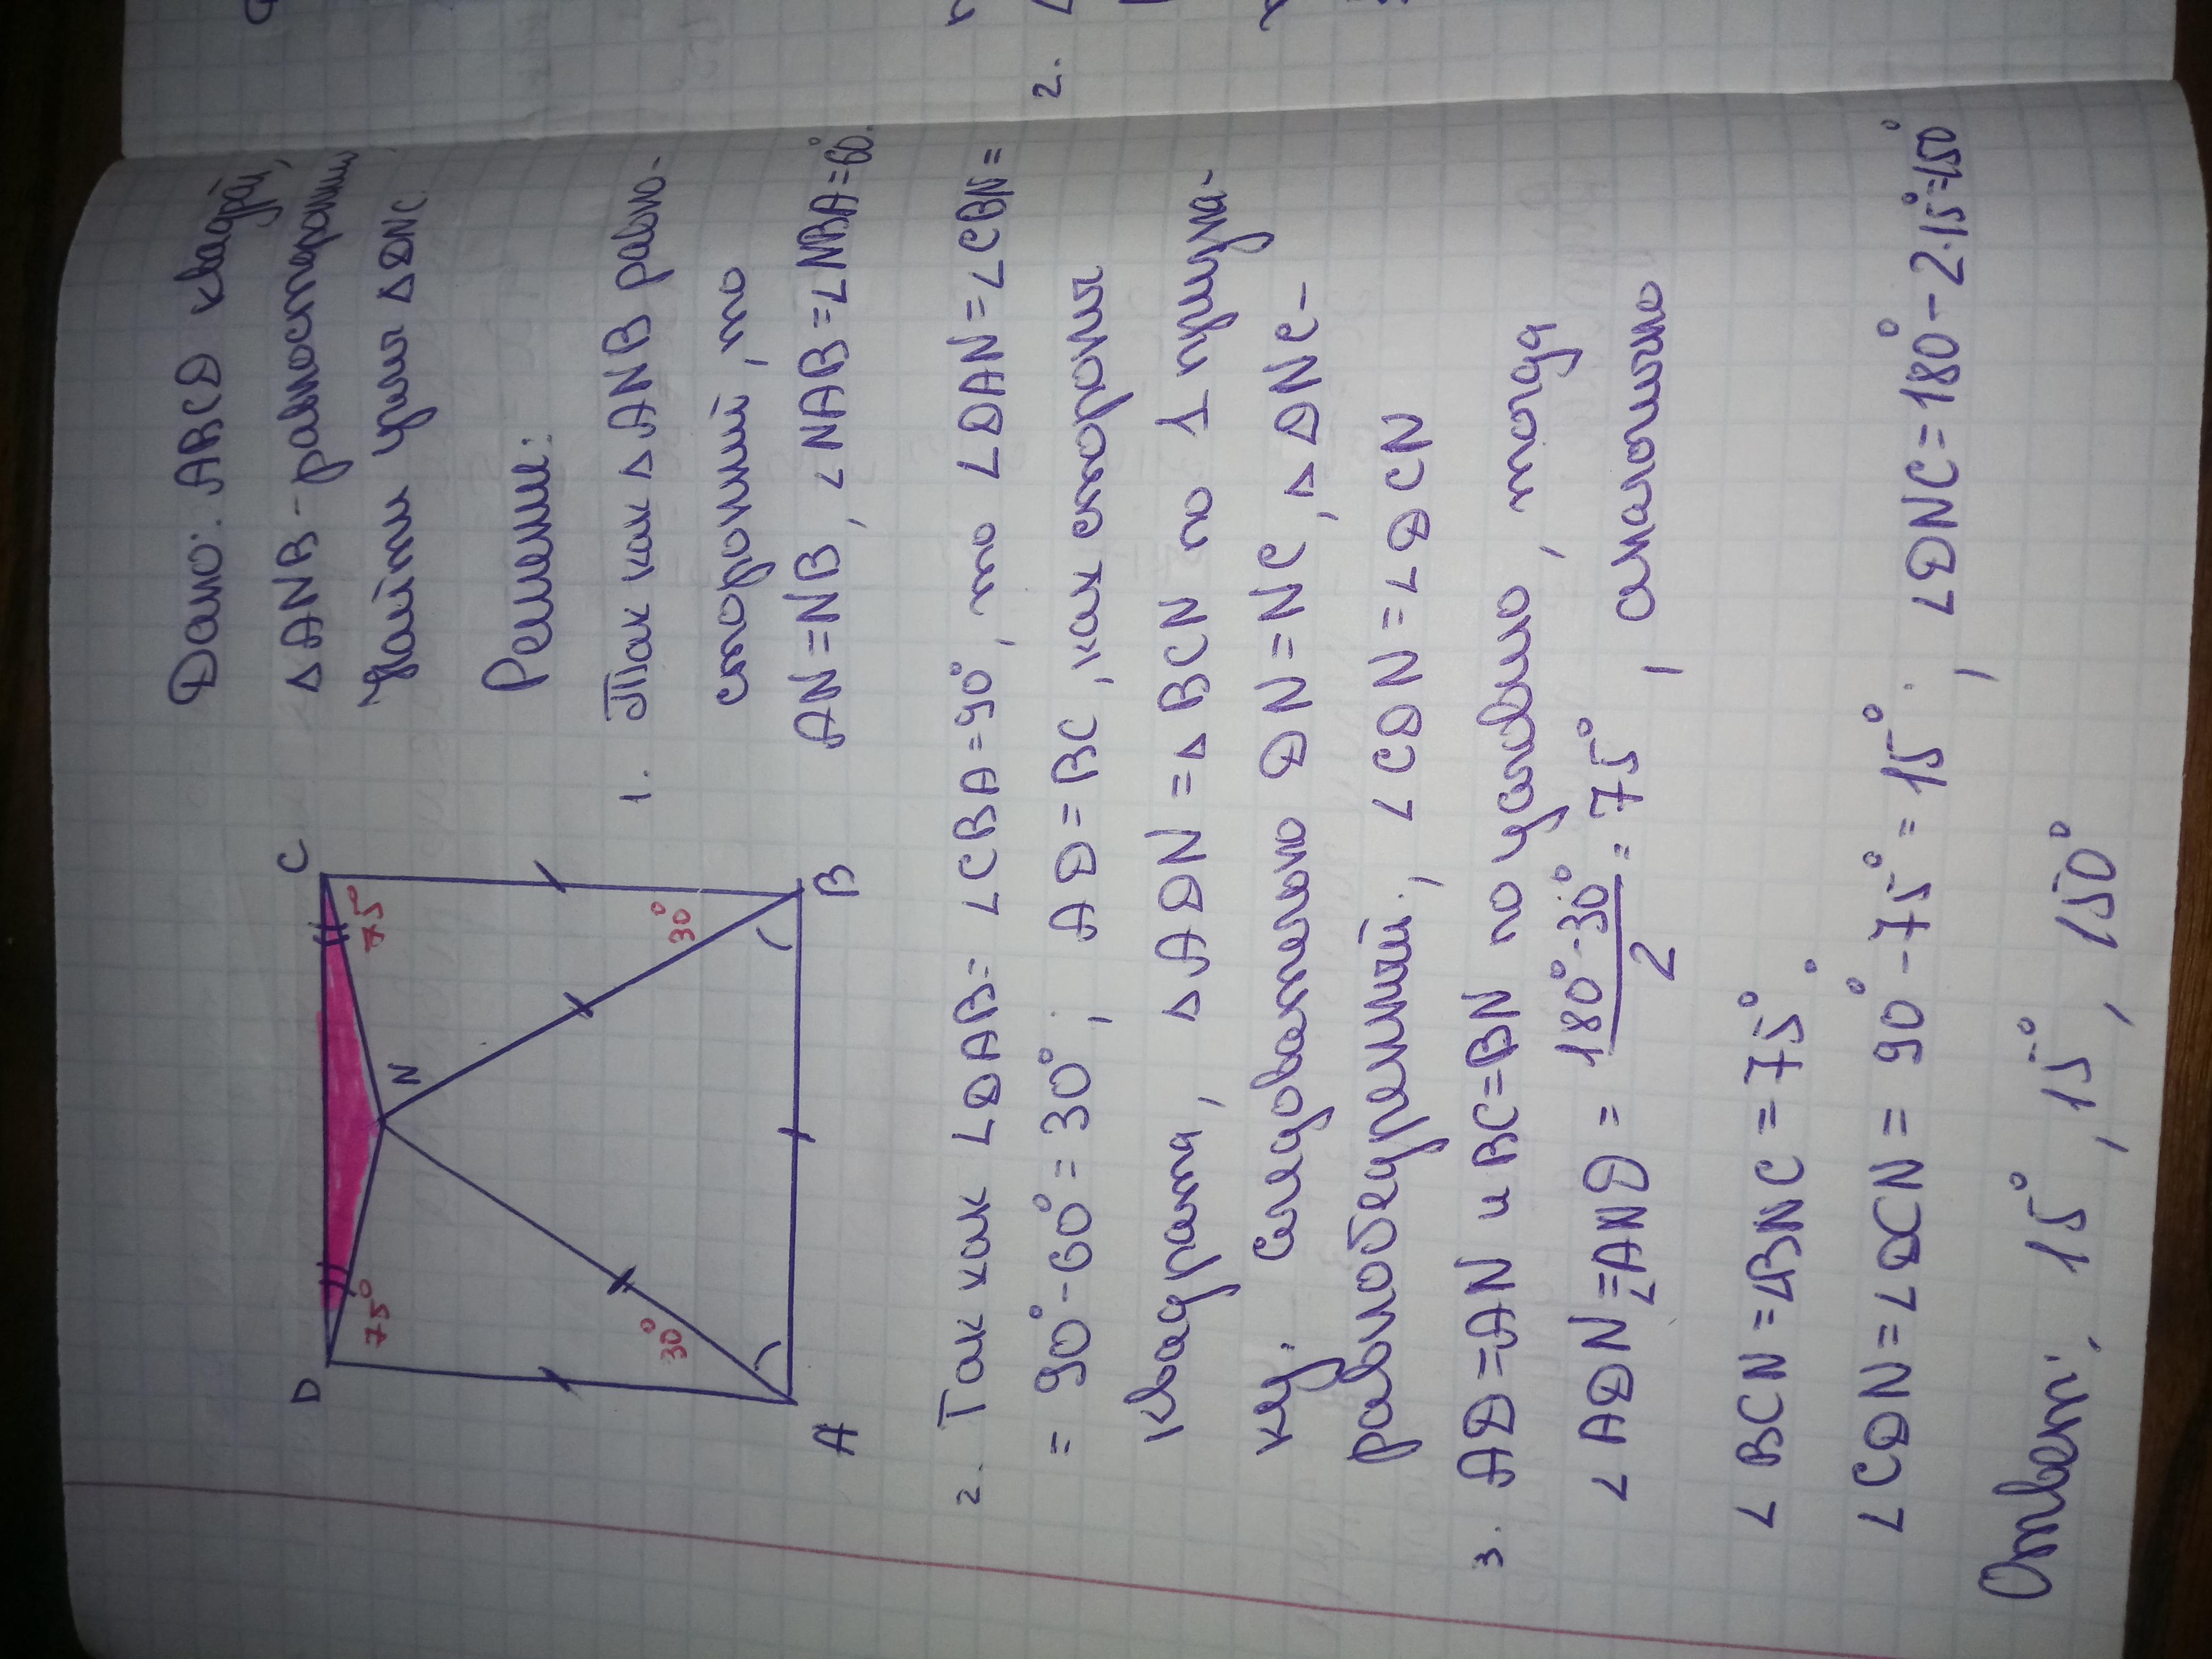 Дано: ABCD квадрат,
△ANB - равносторонний
Найти углы △DNC
Решение:
1. Так как △ANB равно-
сторонний, то
AN=NB, ∠NAB=∠NBA=60°.
D
C
75°
75°
N
30°
30°
A
B
2. Так как ∠DAB= ∠CBA=90°, то ∠DAN=∠CBN=
= 90°-60°=30°; AD=BC, как стороны
квадрата, △ADN=△BCN по 1 призна-
ку. Следовательно DN=NC, △DNC-
равнобедренный; ∠CDN=∠DCN
3. AD=AN и BC=BN по условию, тогда
∠ADN=∠AND = 180°-30°/2 = 75°, аналогично
∠BCN=∠BNC = 75°.
∠CDN=∠DCN = 90°-75°=15°; ∠DNC=180°-2·15°=150°
Ответ: 15°, 15°, 150°
2.